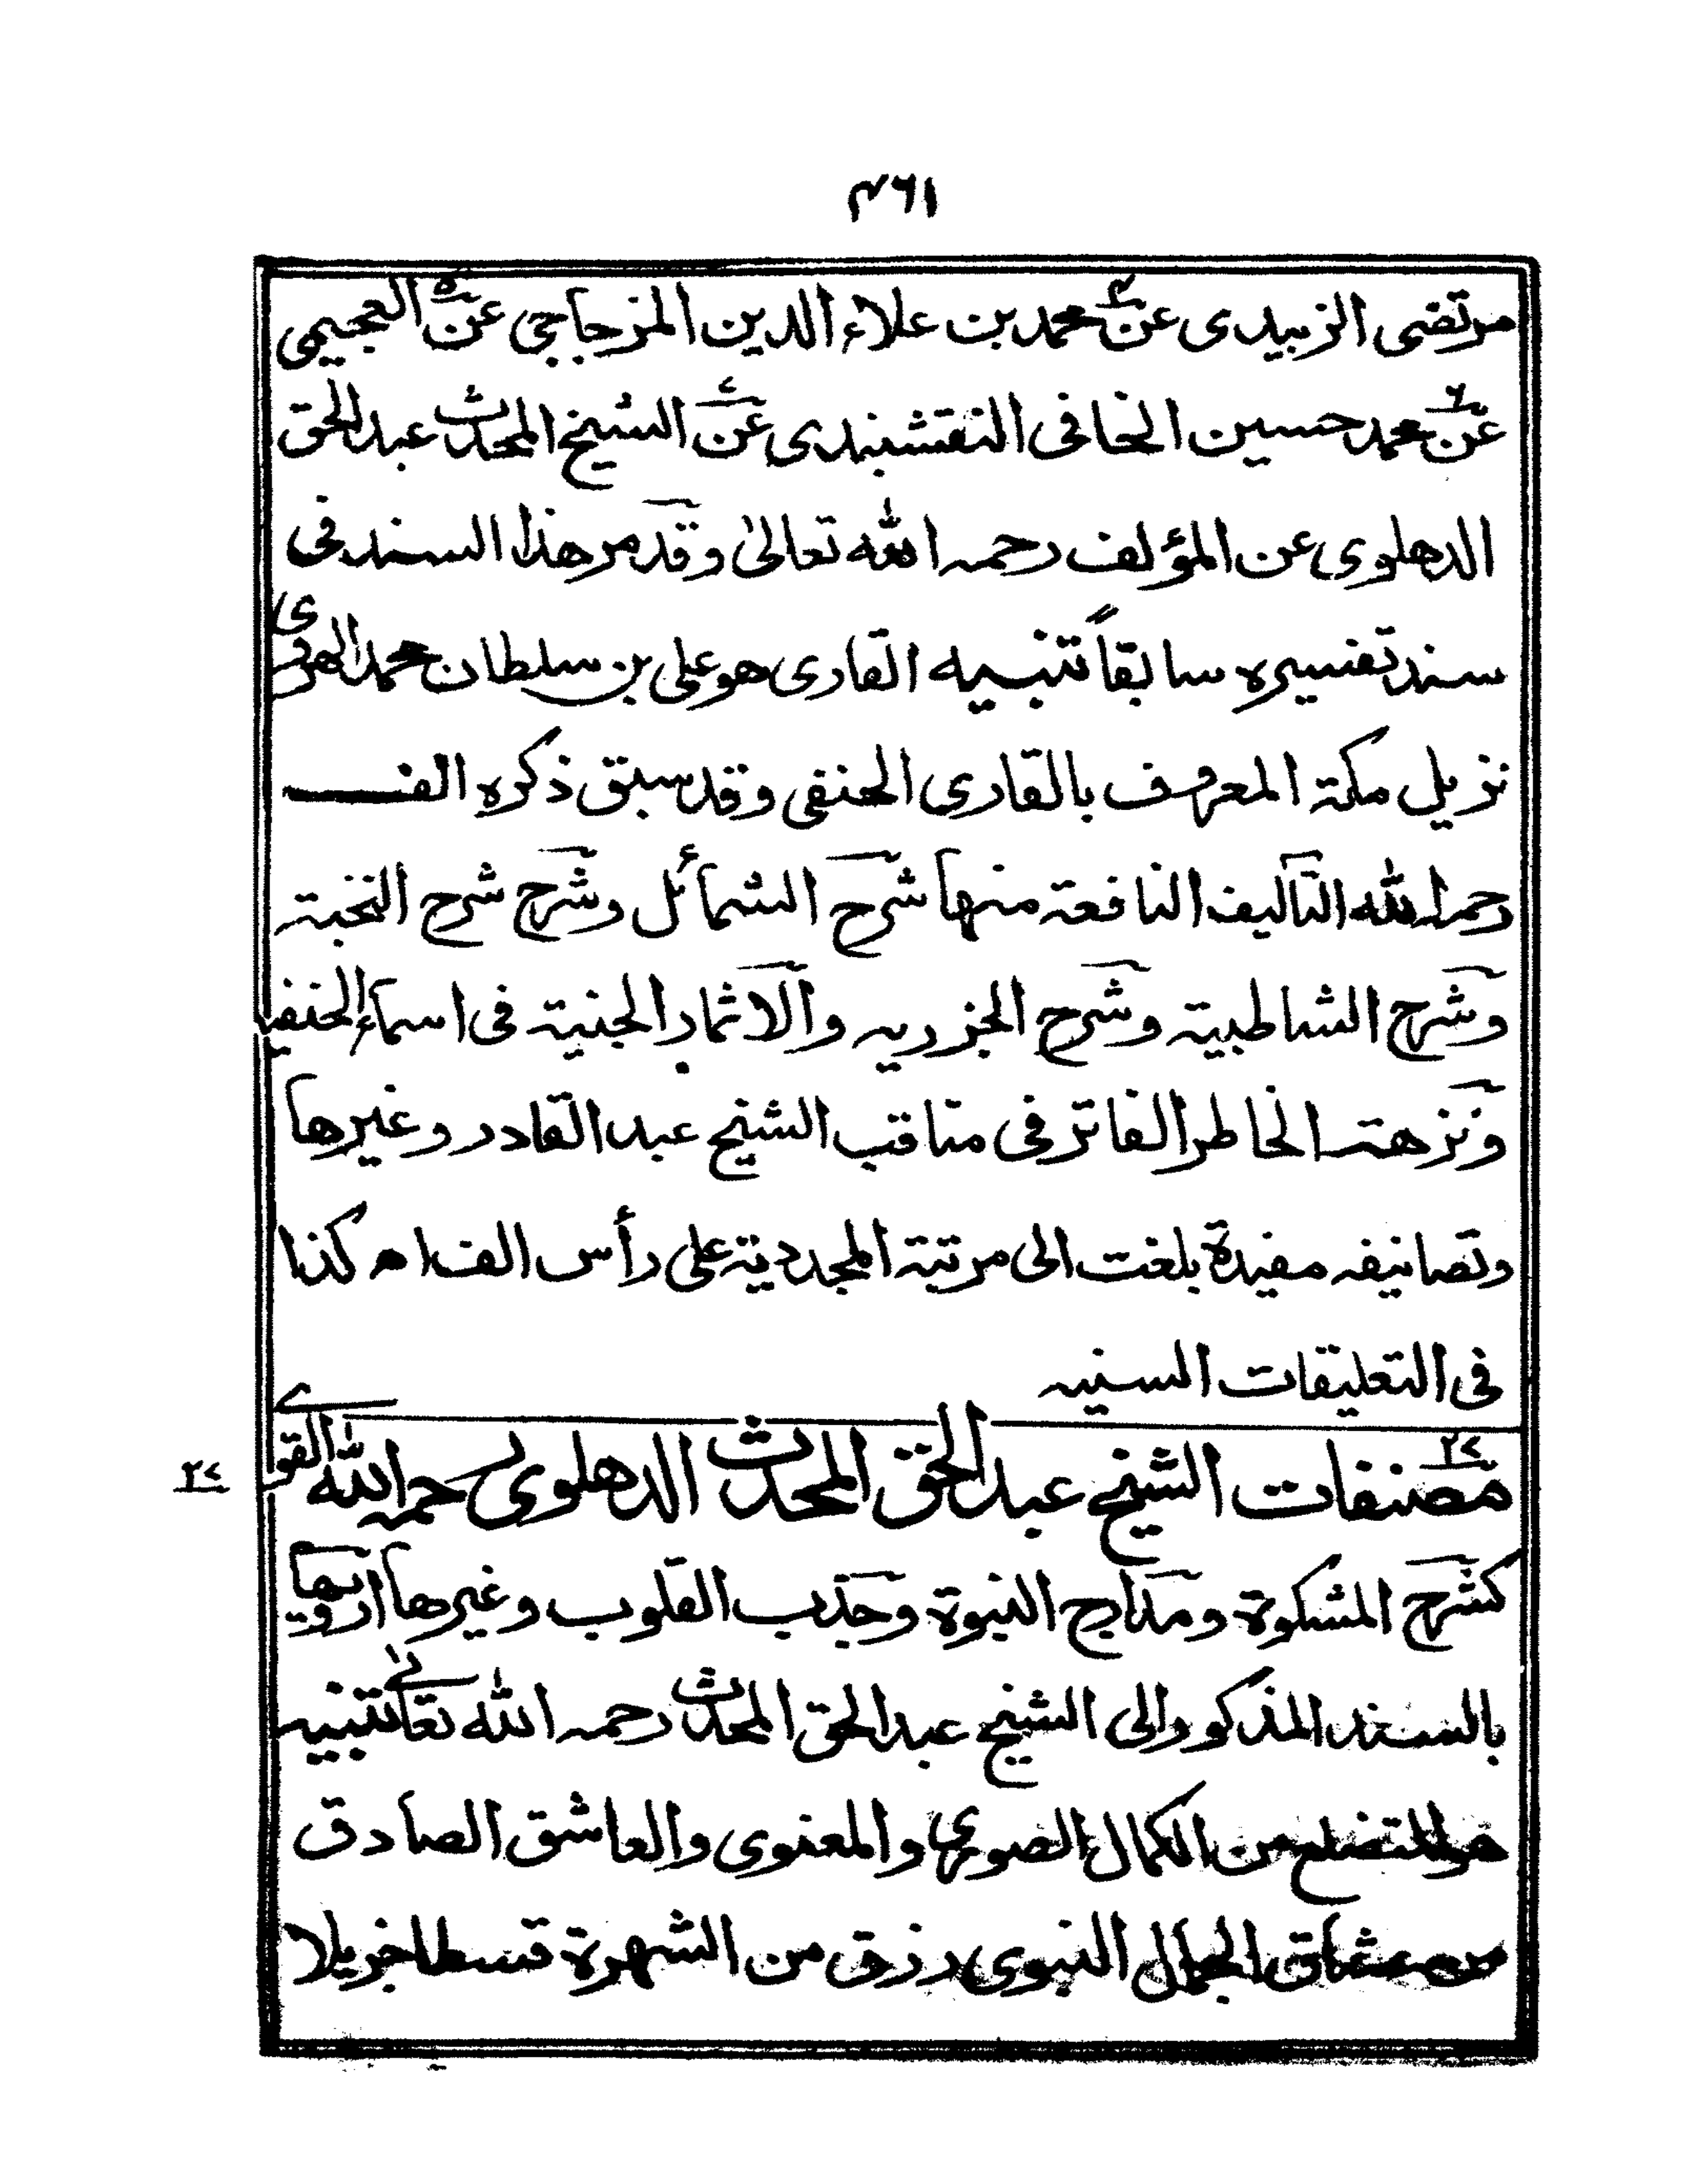 ٤٦١
مرتضى الزبيدى عن٤ محمد بن علاء الدين المزجاجى عن٥ العجيمى
عن٦ محمد حسين الخافى النقشبندى عن٧ الشيخ المحدث عبد الحق
الدهلوى عن المؤلف رحمہ الله تعالىٰ وقد مر هذا السند فى
سند تفسيره سابقاً تنبيه القارى هو على بن سلطان محمد الهروى
نزيل مكة المعروف بالقارى الحنفى وقد سبق ذكره الف
رحمہ الله التآليف النافعة منها شرح الشمائل وشرح شرح النخبة
وشرح الشاطبية وشرح الجزريہ والاثمار الجنية فى اسماء الحنفية
ونزهة الخاطر الفاتر فى مناقب الشيخ عبد القادر وغيرها
وتصانيفہ مفيدة بلغت الى مرتبة المجددية على رأس الف اھ كذا
فى التعليقات السنيہ
٢٧ مصنفات الشيخ عبد الحق المحدث الدهلوى رحمہ الله القوى
٢٧
كشرح المشكوة ومدارج النبوة وجذب القلوب وغيرها ارويها
بالسند المذكور الى الشيخ عبد الحق المحدث رحمہ الله تعالى تنبيہ
هو المتضلع من الكمال الصورى والمعنوى والعاشق الصادق
من عشاق الجمال النبوى رزق من الشهرة قسطا جزيلا